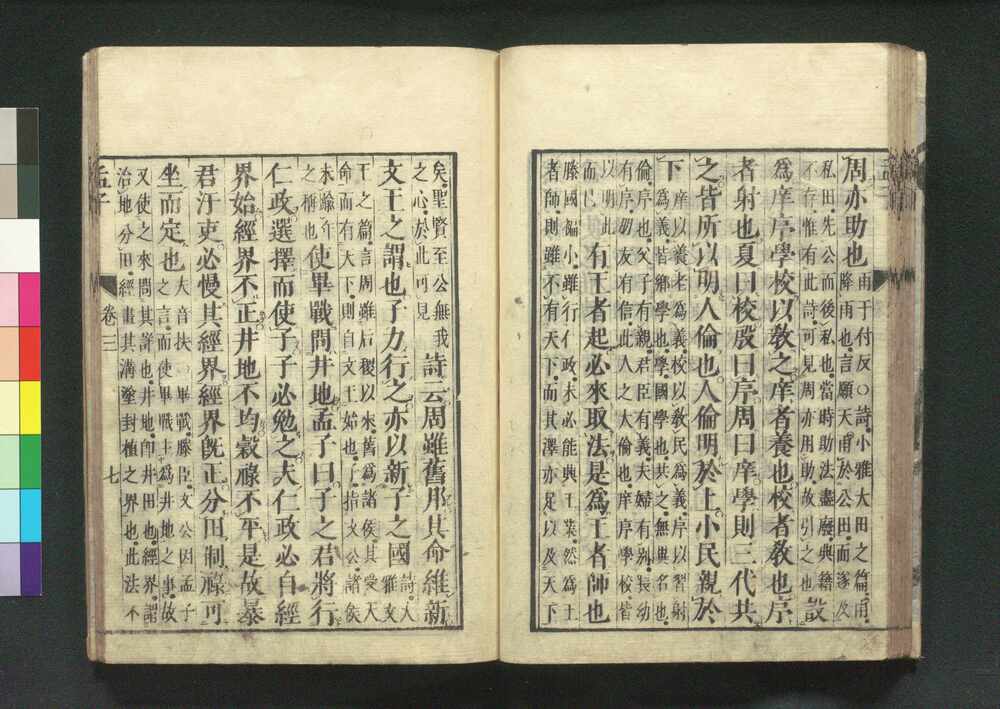 周亦助也
雨于付反○詩小雅大田之篇雨
降雨也言願天雨於公田而遂及
私田先公而後私也當時助法盡廢典籍
不存惟有此詩可見周亦用助故引之也
設
爲庠序學校以敎之庠者養也校者敎也序
者射也夏曰校殷曰序周曰庠學則三代共
之皆所以明人倫也人倫明於上小民親於
下
庠以養老爲義校以敎民爲義序以習射
爲義皆鄉學也學國學也共之無異名也
倫序也父子有親君臣有義夫婦有別長幼
有序朋友有信此人之大倫也庠序學校皆
以明此
而已
有王者起必來取法是爲王者師也
滕國褊小雖行仁政未必能興王業然爲王
者師則雖不有天下而其澤亦足以及天下
矣聖賢至公無我
之心於此可見
詩云周雖舊邦其命維新
文王之謂也子力行之亦以新子之國
詩大
雅文
王之篇言周雖后稷以來舊爲諸侯其受天
命而有天下則自文王始也子指文公諸侯
未踰年
之稱也
使畢戰問井地孟子曰子之君將行
仁政選擇而使子子必勉之夫仁政必自經
界始經界不正井地不均穀祿不平是故暴
君汙吏必慢其經界經界旣正分田制祿可
坐而定也
夫音扶○畢戰滕臣文公因孟子
之言而使畢戰主爲井地之事故
又使之來問其詳也井地卽井田也經界謂
治地分田經畫其溝塗封植之界也此法不
孟子 卷三 七